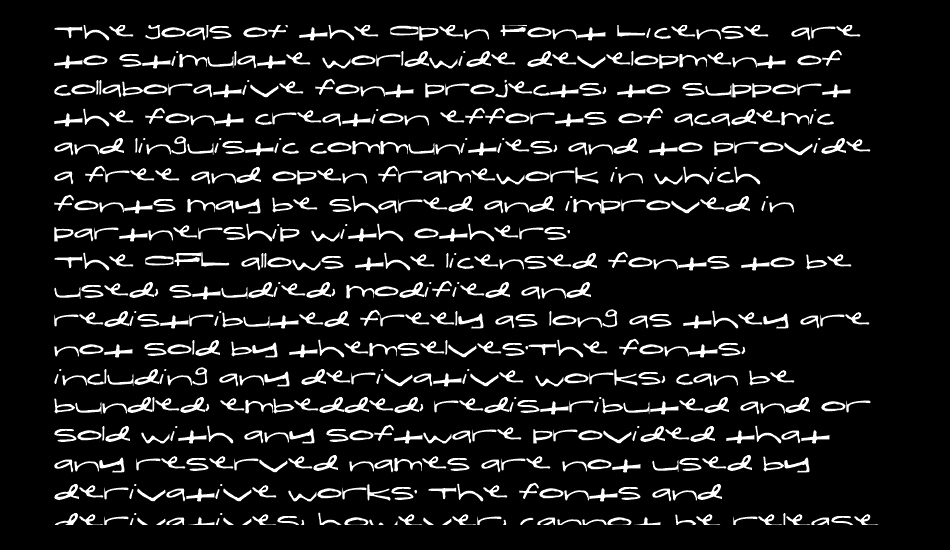 The goals of the Open Font License are
to stimulate worldwide development of
collaborative font projects, to support
the font creation efforts of academic
and linguistic communities, and to provide
a free and open framework in which
fonts may be shared and improved in
partnership with others.
The OFL allows the licensed fonts to be
used, studied, modified and
redistributed freely as long as they are
not sold by themselves.The fonts,
including any derivative works, can be
bundled, embedded, redistributed and or
sold with any software provided that
any reserved names are not used by
derivative works. The fonts and
derivatives, however, cannot be release